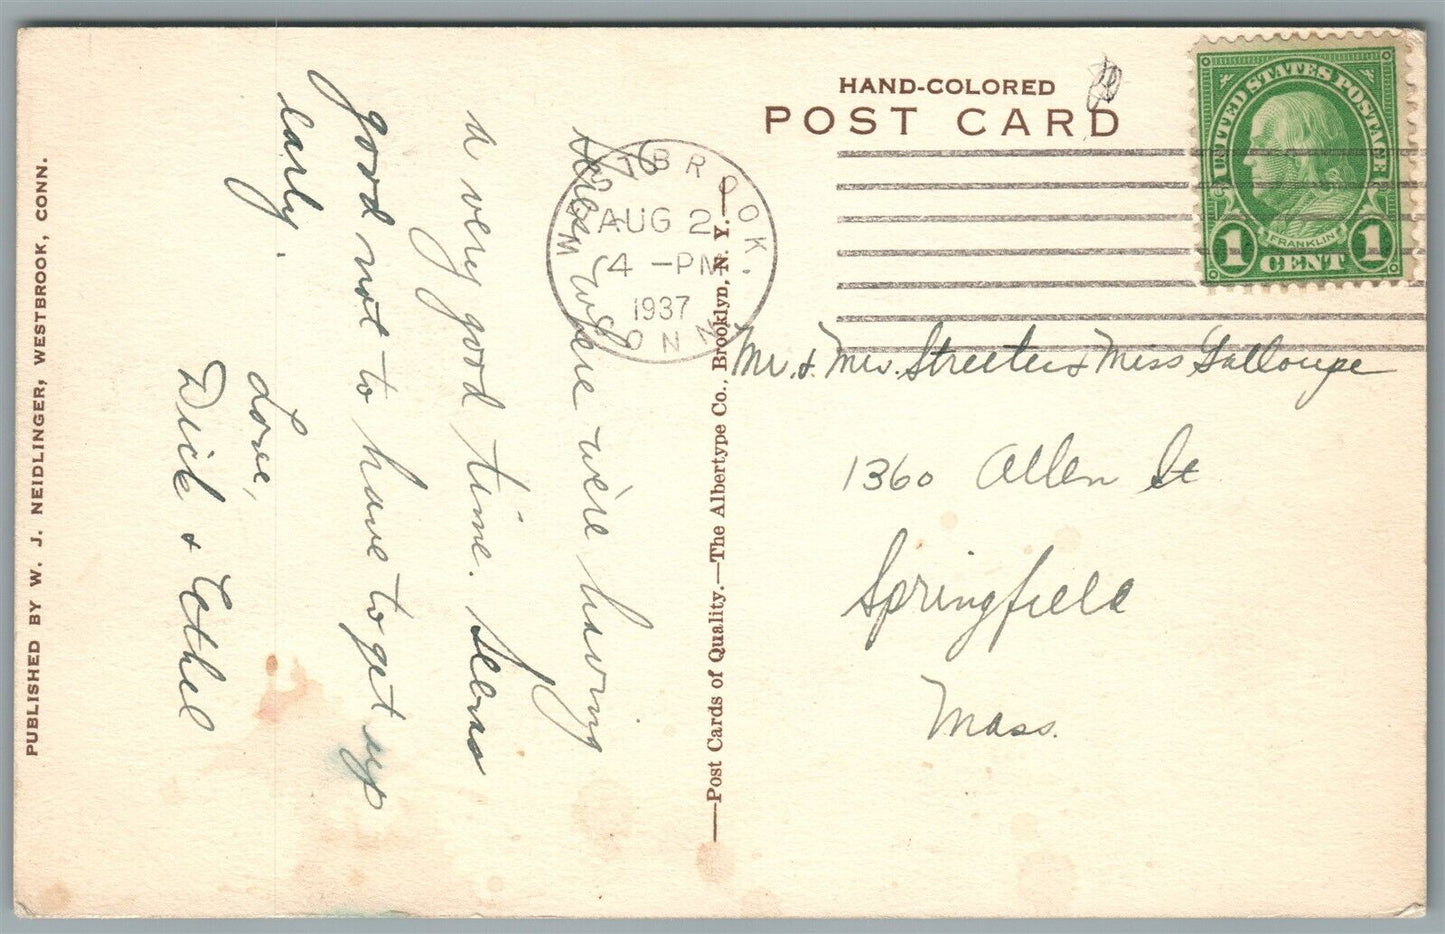 HAND-COLORED
POST CARD
UNITED STATES POSTAGE
FRANKLIN
1 CENT 1
WESTBROOK.
AUG 2
4 - PM
1937
CONN.
Here we're having
a very good time. Seems
good not to have to get up
early.
Love,
Dick & Ethel
Mr. & Mrs. Streeter & Miss Galloupe
1360 Allen St
Springfield
Mass.
—Post Cards of Quality.—The Albertype Co., Brooklyn, N. Y.—
PUBLISHED BY W. J. NEIDLINGER, WESTBROOK, CONN.